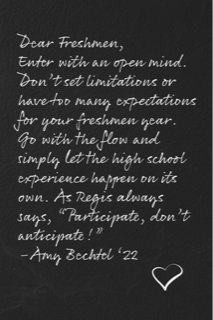 Dear Freshmen,
Enter with an open mind.
Don't set limitations or
have too many expectations
for your freshmen year.
Go with the flow and
simply let the high school
experience happen on its
own. As Regis always
says, "Participate, don't
anticipate!"
-Amy Bechtel '22